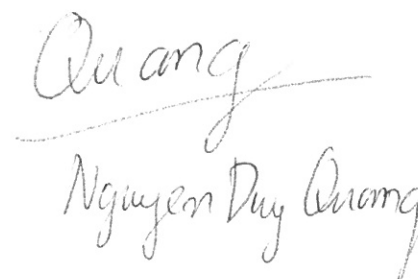 Quang
Nguyen Duy Quang